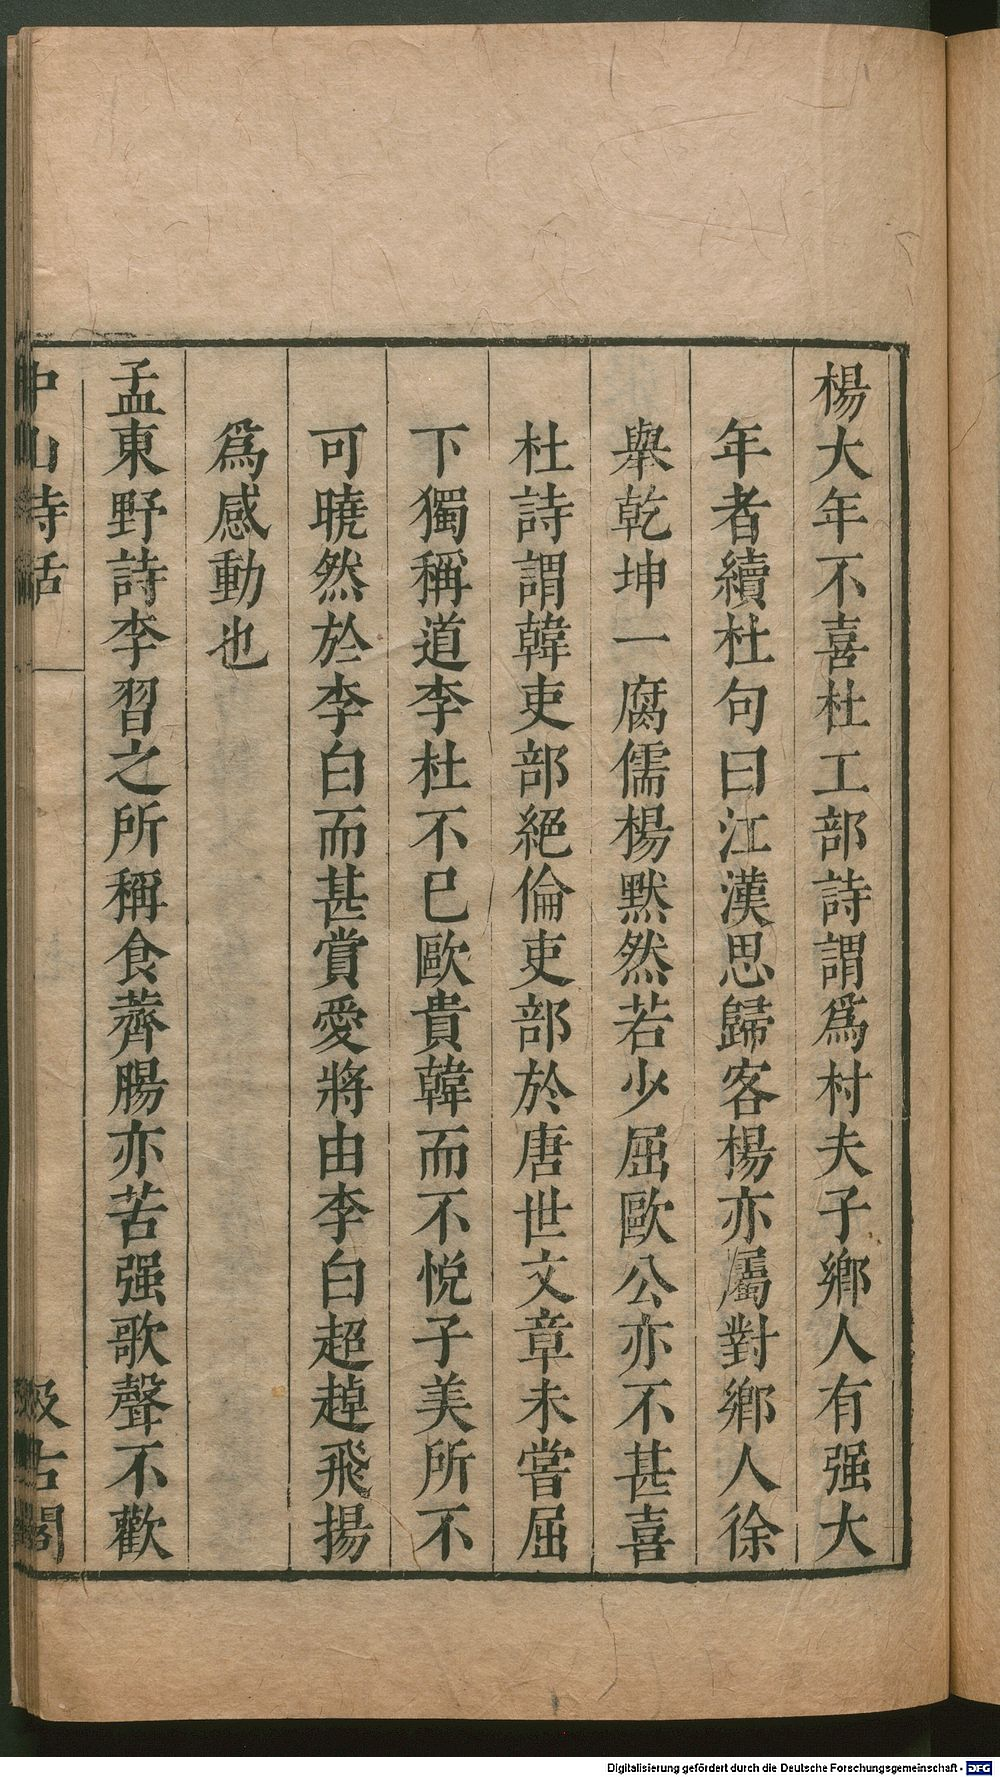 楊大年不喜杜工部詩謂爲村夫子鄉人有强大
年者續杜句曰江漢思歸客楊亦屬對鄉人徐
舉乾坤一腐儒楊默然若少屈歐公亦不甚喜
杜詩謂韓吏部絕倫吏部於唐世文章未嘗屈
下獨稱道李杜不已歐貴韓而不悅子美所不
可曉然於李白而甚賞愛將由李白超趠飛揚
爲感動也
孟東野詩李習之所稱食薺腸亦苦强歌聲不歡
中山詩話
汲古閣
Digitalisierung gefördert durch die Deutsche Forschungsgemeinschaft - DFG